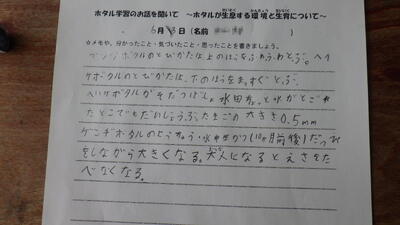 ホタル学習のお話を聞いて ～ホタルが生息する環境と生育について～
6月 日(名前 )
☆メモや、分かったこと・気づいたこと・思ったことを書きましょう。
ゲンジボタルのとびかたは上のほうをふわふわとぶ。ヘイ
ケボタルのとびかたは、下のほうをまっすぐとぶ。
ヘイケボタルがそだつばしょ水田ちょっと水がにごれ
たとこでもだいじょうぶ。たまごの大きさ0.5mm
ゲンジボタルのようちゅう・水中せいかつ(10ヶ月前後)だっぴ
をしながら大きくなる。大人になるとえさをた
べなくなる。